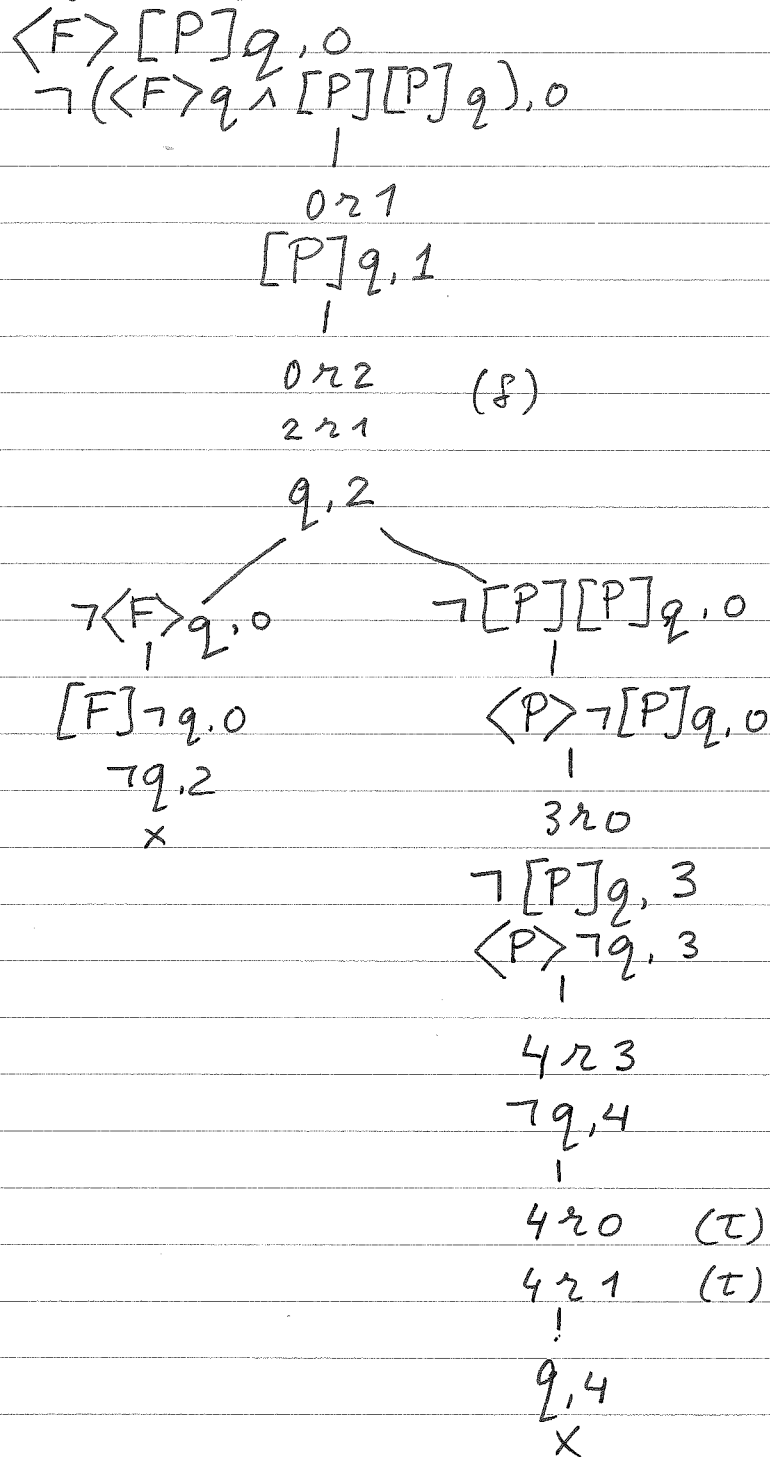 <F>[P]q,0
¬(<F>q ∧ [P][P]q),0
0r1
[P]q,1
0r2 (δ)
2r1
q,2
¬<F>q,0 ¬[P][P]q,0
[F]¬q,0 <P>¬[P]q,0
¬q,2
× 3r0
¬[P]q,3
<P>¬q,3
4r3
¬q,4
4r0 (τ)
4r1 (τ)
q,4
×